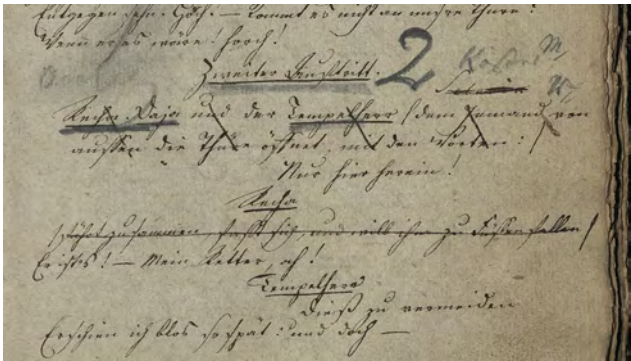 Entgegen sehn. Horch! — kommt es nicht an unsre Thüre?
Wenn er es wäre! horch!
Zweiter Auftritt. 2
Recha. Daja und der Tempelherr (dem Jemand von
aussen die Thüre öffnet, mit den Worten:)
Nur hier herein!
Recha
fährt zusammen, faßt sich, und will ihm zu Füssen fallen)
Er ists! — Mein Retter, ah!
Tempelherr
Dieß zu vermeiden
Erschien ich blos so spät: und doch —